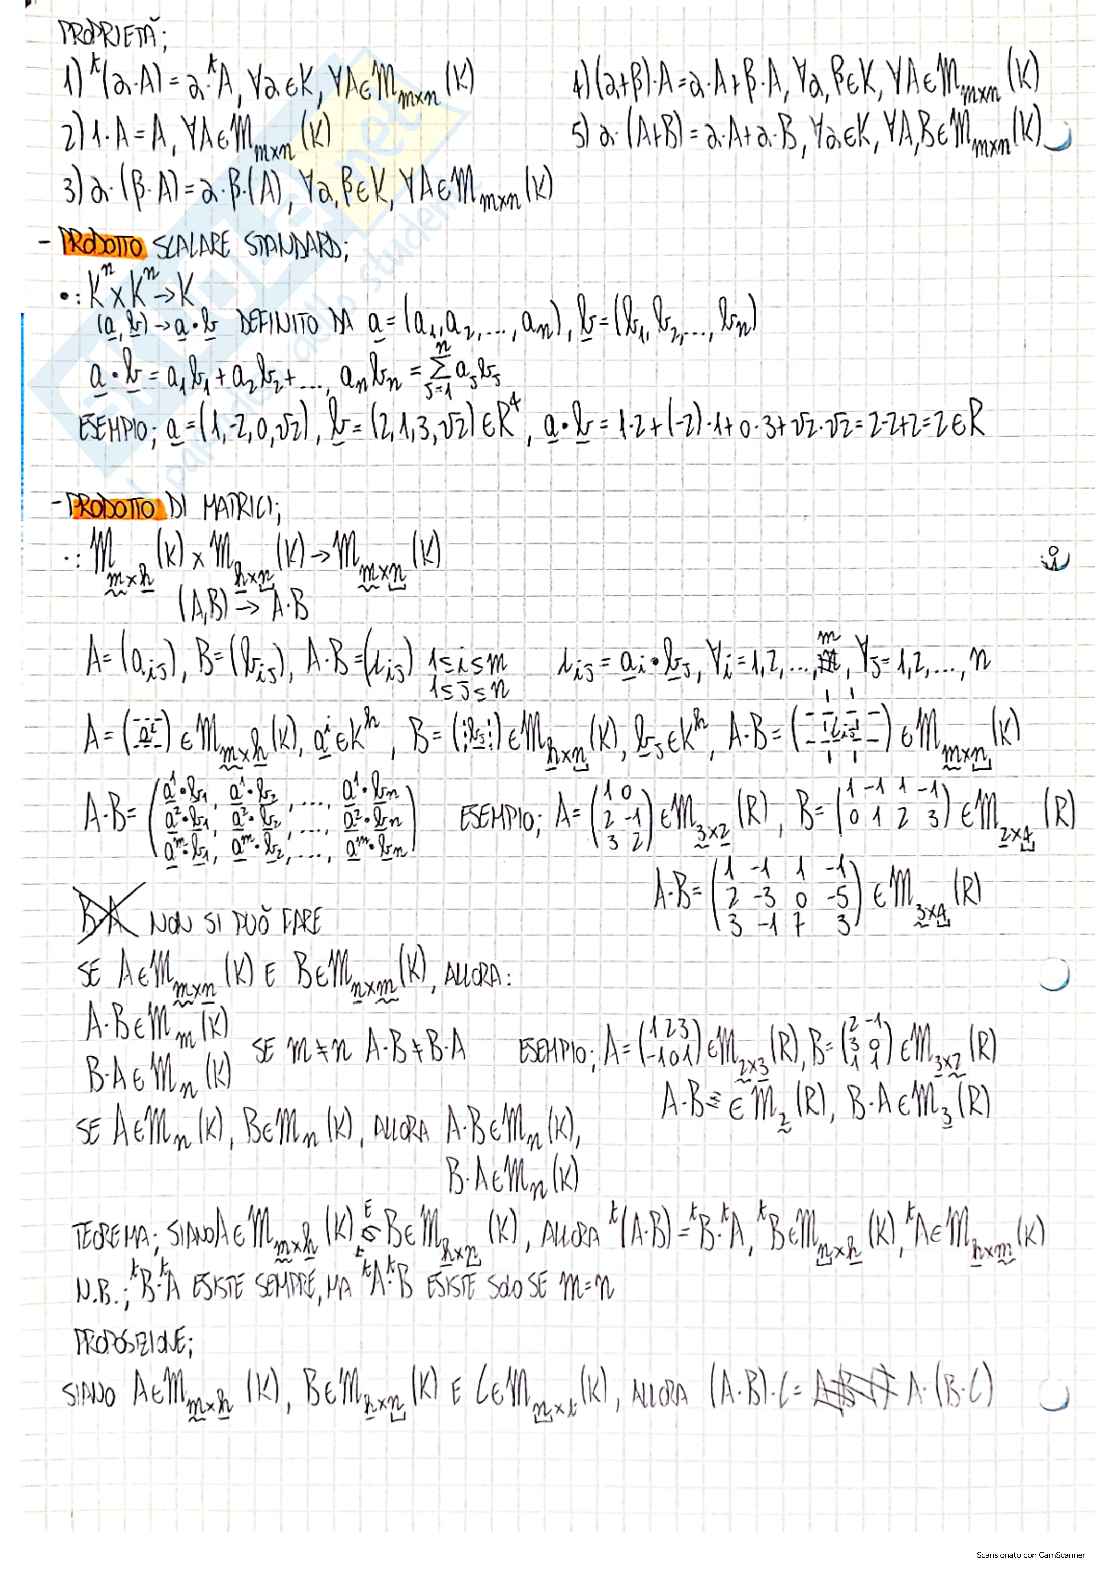 PROPRIETÀ;
1) ᵗ(α·A) = α·ᵗA, ∀α∈K, ∀A∈M_{m×n}(K)
2) 1·A = A, ∀A∈M_{m×n}(K)
3) α·(β·A) = α·β·(A), ∀α,β∈K, ∀A∈M_{m×n}(K)
4) (α+β)·A = α·A+β·A, ∀α,β∈K, ∀A∈M_{m×n}(K)
5) α·(A+B) = α·A+α·B, ∀α∈K, ∀A,B∈M_{m×n}(K)
- PRODOTTO SCALARE STANDARD;
•: Kⁿ×Kⁿ→K
(a,b)→a•b DEFINITO DA a = (a₁,a₂,...,aₙ), b = (b₁,b₂,...,bₙ)
a•b = a₁b₁+a₂b₂+..., aₙbₙ = Σ_{j=1}^{n} a_j b_j
ESEMPIO; a = (1,-2,0,√2), b = (2,1,3,√2)∈R⁴, a•b = 1·2+(-2)·1+0·3+√2·√2 = 2-2+2 = 2∈R
- PRODOTTO DI MATRICI;
·: M_{m×h}(K) × M_{h×n}(K) → M_{m×n}(K)
(A,B) → A·B
A = (a_{ij}), B = (b_{ij}), A·B = (c_{ij}) 1≤i≤m 1≤j≤n c_{ij} = a_i•b_j, ∀i=1,2,...,m, ∀j=1,2,...,n
A = (aⁱ) ∈M_{m×h}(K), aⁱ∈K^h, B = (b_j) ∈M_{h×n}(K), b_j∈K^h, A·B = (c_{ij}) ∈M_{m×n}(K)
A·B = (a¹•b₁, a¹•b₂, ..., a¹•bₙ
a²•b₁, a²•b₂, ..., a²•bₙ
aᵐ•b₁, aᵐ•b₂, ..., aᵐ•bₙ)
ESEMPIO; A = (1 0
2 -1
3 2) ∈M_{3×2}(R), B = (1 -1 1 -1
0 1 2 3) ∈M_{2×4}(R)
A·B = (1 -1 1 -1
2 -3 0 -5
3 -1 7 3) ∈M_{3×4}(R)
B·A NON SI PUÒ FARE
SE A∈M_{m×n}(K) E B∈M_{n×m}(K), ALLORA:
A·B∈M_m(K)
B·A∈M_n(K)
SE m≠n A·B≠B·A
ESEMPIO; A = (1 2 3
-1 0 1) ∈M_{2×3}(R), B = (2 -1
3 0
1 1) ∈M_{3×2}(R)
A·B ∈M₂(R), B·A∈M₃(R)
SE A∈M_n(K), B∈M_n(K), ALLORA A·B∈M_n(K),
B·A∈M_n(K)
TEOREMA; SIANO A∈M_{m×h}(K) E B∈M_{h×n}(K), ALLORA ᵗ(A·B) = ᵗB·ᵗA, ᵗB∈M_{n×h}(K), ᵗA∈M_{h×m}(K)
N.B.; ᵗB·ᵗA ESISTE SEMPRE, MA ᵗA·ᵗB ESISTE SOLO SE m=n
PROPOSIZIONE;
SIANO A∈M_{m×h}(K), B∈M_{h×n}(K) E C∈M_{n×t}(K), ALLORA (A·B)·C = A·(B·C)
Scansionato con CamScanner